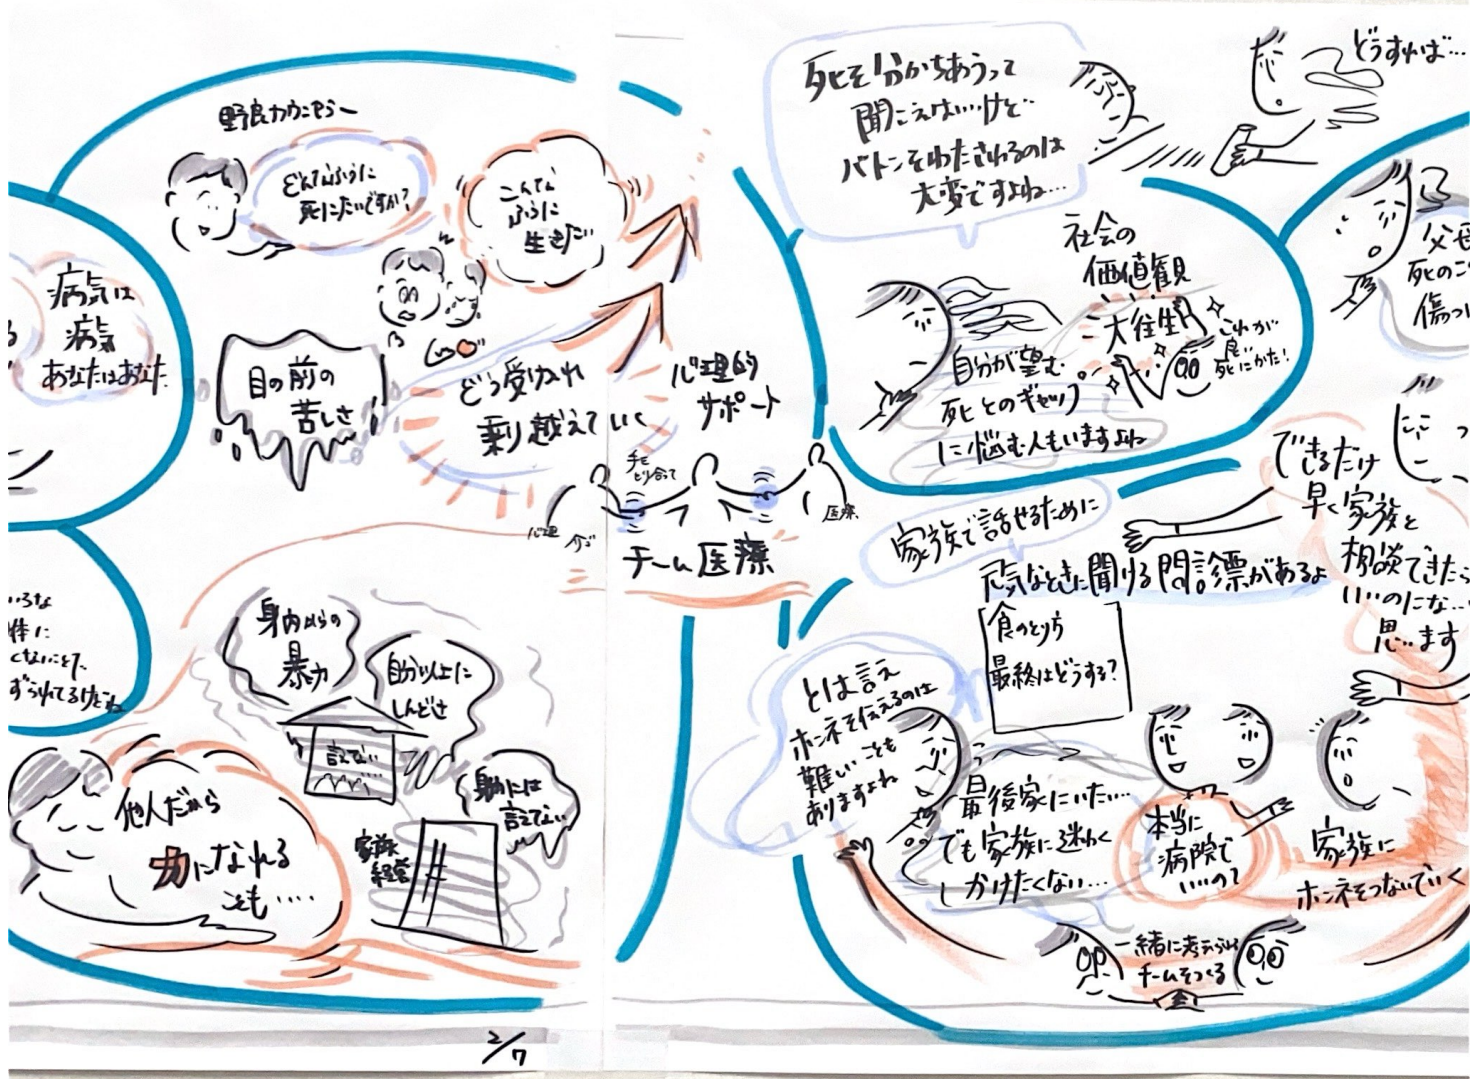 野良カウンセラー
どんなふうに
死にたいですか?
こんな
ふうに
生きたい
病気は
病気
あなたはあなた
目の前の
苦しさ
どう受け入れ
乗り越えていく
心理的
サポート
手を
とり合って
心理
医療
チーム医療
身内からの
暴力
自分以上に
しんどさ
言えない…
身内には
言えない
家族
経営
他人だから
力になれる
ことも……
2/7
死を分かちあうって
聞こえはいい…けど
バトンをわたされるのは
大変ですよね…
どうすれば…
社会の
価値観
大往生
これが
良い
死にかた!
自分が望む
死とのギャップ
に悩む人もいますよね
父母
死のこ
傷つ
家族で話せるために
元気なときに聞ける問診票があるよ
食のとり方
最終はどうする?
できるだけ
早く家族と
相談できたら
いいのにな…
思います
とは言え
ホンネを伝えるのは
難しいことも
ありますよね
最後家にいたい…
でも家族に迷わく
かけたくない…
本当に
病院で
いいの?
家族に
ホンネをつないでいく
一緒に考えられる
チームをつくる